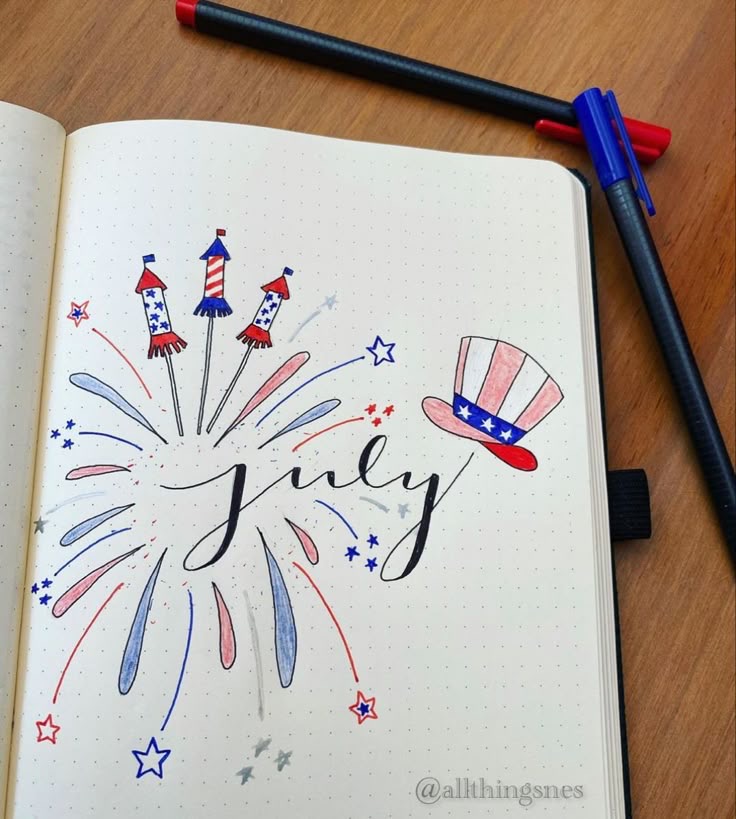 July
@allthingsnes